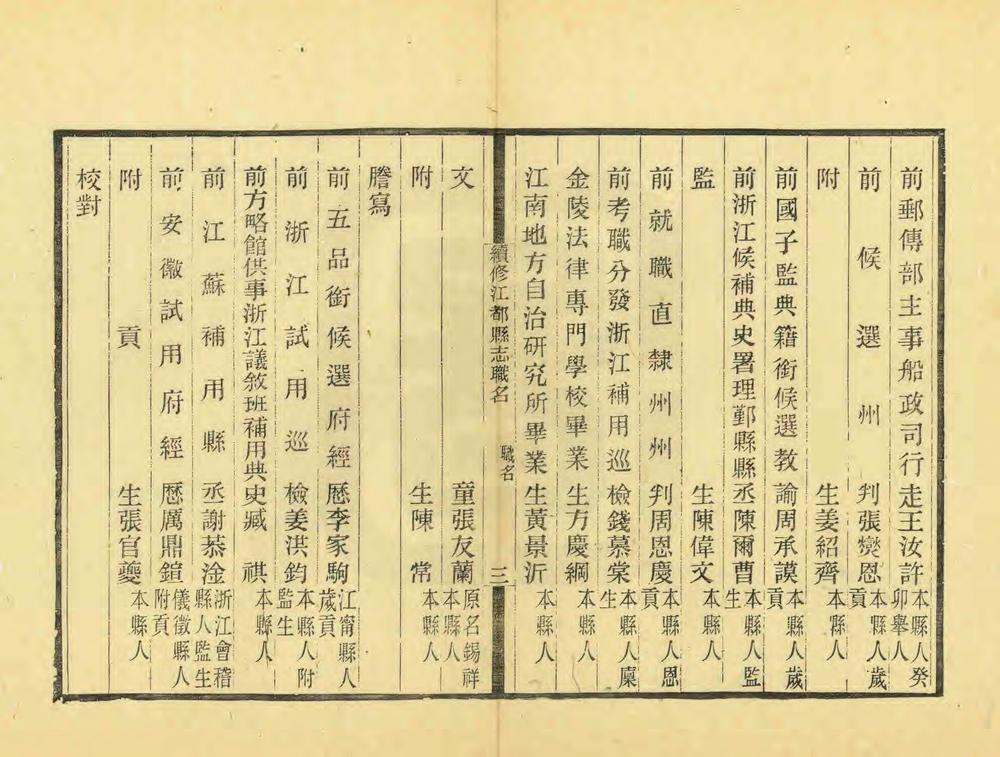 前郵傳部主事船政司行走王汝許本縣人癸卯舉人
前候選州判張爕恩本縣人歲貢
附生姜紹齊本縣人
前國子監典籍銜候選教諭周承謨本縣人歲貢
前浙江候補典史署理鄞縣縣丞陳爾曹本縣人監生
監生陳偉文本縣人
前就職直隸州州判周恩慶本縣人恩貢
前考職分發浙江補用巡檢錢慕棠本縣人廩生
金陵法律專門學校畢業生方慶綱本縣人
江南地方自治研究所畢業生黃景沂本縣人
續修江都縣志職名 職名 三
文童張友蘭原名錫祥本縣人
附生陳常本縣人
謄寫
前五品銜候選府經歷李家駒江甯縣人歲貢
前浙江試用巡檢姜洪鈞本縣人附監生
前方略館供事浙江議敘班補用典史臧祺本縣人
前江蘇補用縣丞謝菾淦浙江會稽縣人監生
前安徽試用府經歷厲鼎鍹儀徵縣人附貢
附貢生張官夔本縣人
校對